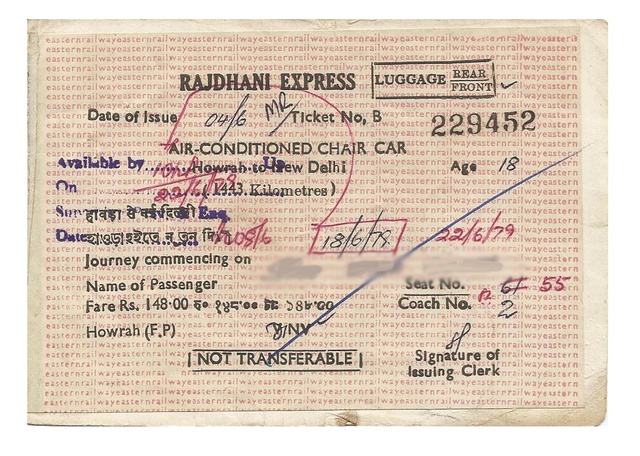 RAJDHANI EXPRESS
LUGGAGE REAR FRONT
Date of Issue 04/6 MR Ticket No, B 229452
AIR-CONDITIONED CHAIR CAR
Available by Up
Howrah to New Delhi Age 18
On 22/6/79 (1443 Kilometres)
हावड़ा से नई दिल्ली
Date
হাওড়া হইতে নতুন দিল্লী 08/6 18/6/79 22/6/79
Journey commencing on
Name of Passenger Seat No. 55
Fare Rs. 148·00 रु० १४८·०० টাঃ ১৪৮·০০ Coach No. 2
Howrah (F.P)
NOT TRANSFERABLE
Signature of
Issuing Clerk